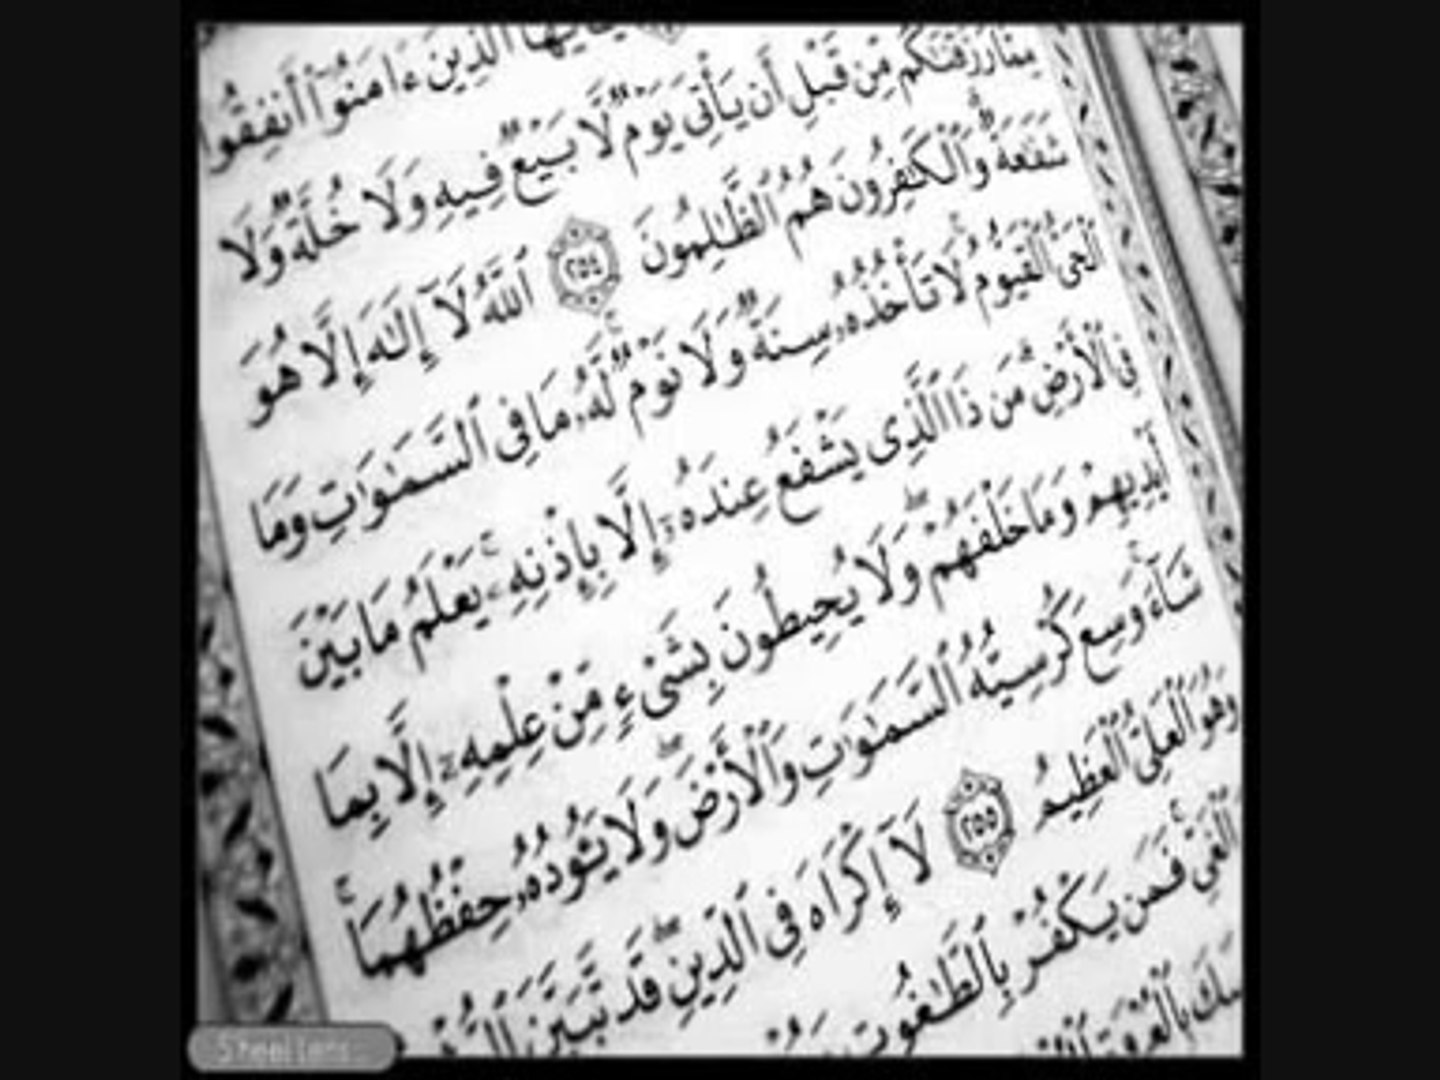 يَٰٓأَيُّهَا ٱلَّذِينَ ءَامَنُوٓا۟ أَنفِقُوا۟
مِمَّا رَزَقْنَٰكُم مِّن قَبْلِ أَن يَأْتِىَ يَوْمٌ لَّا بَيْعٌ فِيهِ وَلَا خُلَّةٌ وَلَا
شَفَٰعَةٌ ۗ وَٱلْكَٰفِرُونَ هُمُ ٱلظَّٰلِمُونَ ٢٥٤ ٱللَّهُ لَآ إِلَٰهَ إِلَّا هُوَ
ٱلْحَىُّ ٱلْقَيُّومُ ۚ لَا تَأْخُذُهُۥ سِنَةٌ وَلَا نَوْمٌ ۚ لَّهُۥ مَا فِى ٱلسَّمَٰوَٰتِ وَمَا
فِى ٱلْأَرْضِ ۗ مَن ذَا ٱلَّذِى يَشْفَعُ عِندَهُۥٓ إِلَّا بِإِذْنِهِۦ ۚ يَعْلَمُ مَا بَيْنَ
أَيْدِيهِمْ وَمَا خَلْفَهُمْ ۖ وَلَا يُحِيطُونَ بِشَىْءٍ مِّنْ عِلْمِهِۦٓ إِلَّا بِمَا
شَآءَ ۚ وَسِعَ كُرْسِيُّهُ ٱلسَّمَٰوَٰتِ وَٱلْأَرْضَ ۖ وَلَا يَـُٔودُهُۥ حِفْظُهُمَا ۚ
وَهُوَ ٱلْعَلِىُّ ٱلْعَظِيمُ ٢٥٥ لَآ إِكْرَاهَ فِى ٱلدِّينِ ۖ قَد تَّبَيَّنَ
ٱلْغَىِّ ۚ فَمَن يَكْفُرْ بِٱلطَّٰغُوتِ
بِٱلْعُرْوَةِ
Steellens